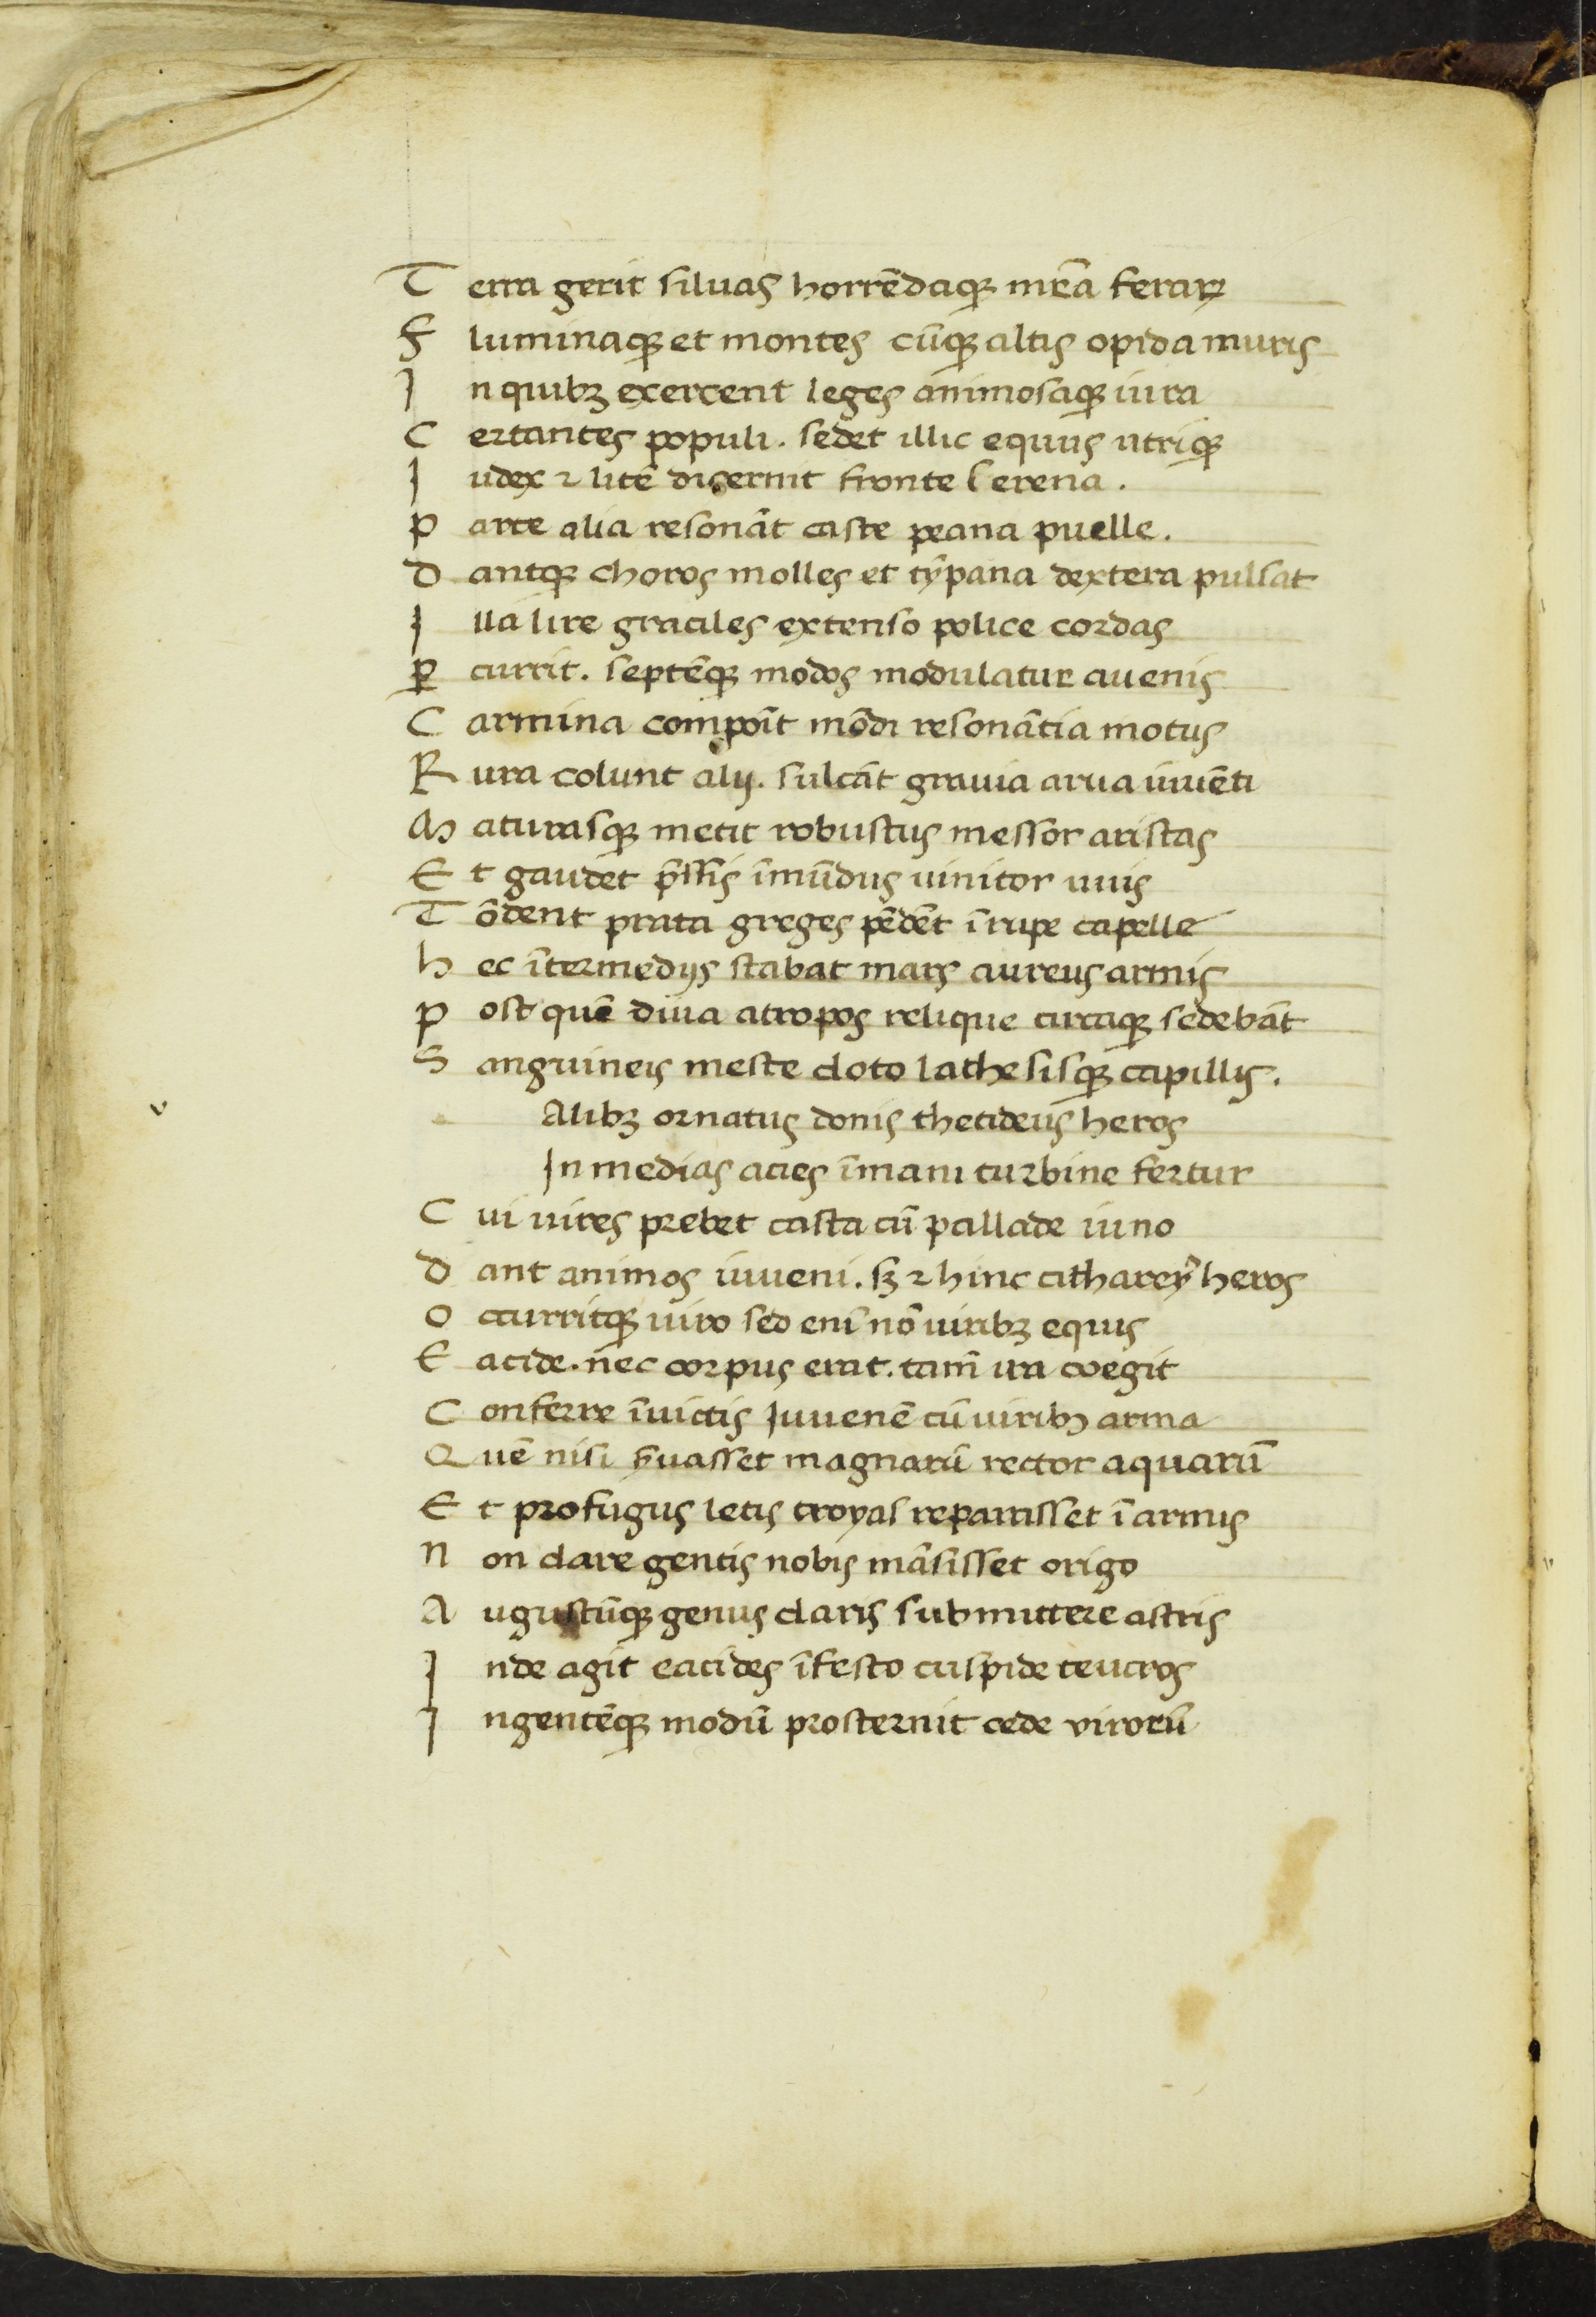 Terra gerit siluas horrẽdaqꝫ mr̃ea feraꝝ
Fluminaqꝫ et montes cũqꝫ altis opida muris
In quibꝫ exercent leges animosaqꝫ iura
Certantes populi. sedet illic equus utriqꝫ
Iudex ⁊ litẽ dicernit fronte serena.
Parte alia resonãt caste peana puelle.
Dantqꝫ choros molles et tỹpana dextera pulsat
Illa lire graciles extenso police cordas
ꝑcurrit. septẽqꝫ modos modulatur auenis
Carmina compoĩt mõdi resonãtia motus
Rura colunt alij. sulcãt grauia arua iuuẽci
Maturasqꝫ metit robustus messor aristas
Et gaudet p̃ssis ĩmũdus uinitor uuis
Tõdent prata greges pẽdẽt ĩ rupe capelle
hec ĩtermedijs stabat mars aureus armis
post quẽ diua atropos relique circaqꝫ sedebãt
Sanguineis meste cloto lathesisqꝫ capillis.
Alibꝫ ornatus donis thetideus heros
In medias acies ĩmani turbine fertur
Cui uires prebet casta cũ pallade iuno
Dant animos iuueni. sꝫ ⁊ hinc citharey᷒ heros
Occurritqꝫ uiro sed enĩ nõ uiribꝫ equis
Eacide. nec corpus erat. tam̃ ira coegit
Conferre ĩuictis Iuuenẽ cũ uiribꝫ arma
Quẽ nisi s̃uasset magnarũ rector aquarũ
Et profugus letis troyas reparasset ĩ armis
Non clare gentis nobis mãsisset origo
Augustũqꝫ genus claris submittere astris
Inde agit eacides ĩfesto cuspide teucros
Ingentẽqꝫ modũ prosternit cede virorũ